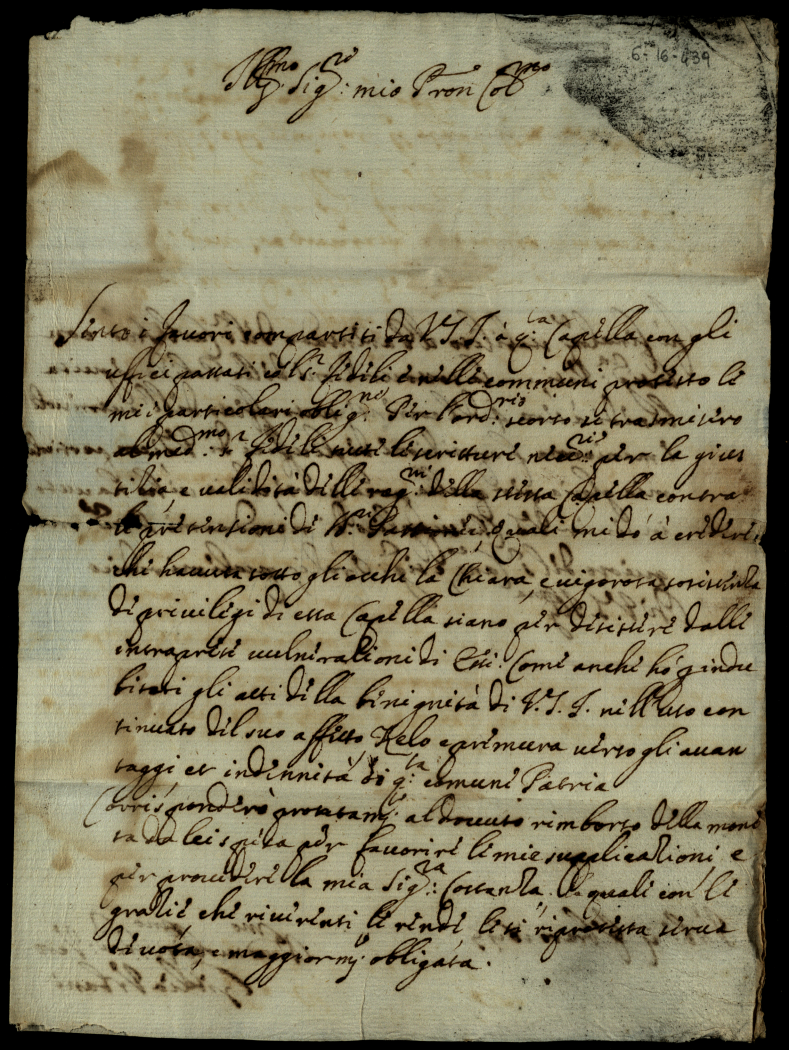 6-16-439
Ill.mo Sig.re mio Pron Col.mo
Sento i favori compartiti da V.S.I. à q.ta Capella con gli
ufficij passati co ss.ri fedeli e nelle communi protesto le
mie particolari oblig.ni Per l'ord.rio scorso si trasmisero
al med.mo fedeli tutte le scritture nec.rie per la gius
titia, e validità delli reg.ni della stessa Capella contra
le pretensioni di quali mi dò à credere,
che havuta sotto gli occhi la chiara, e vigorosa sossistenza
di privilegi di essa Capella siano per desistere dalle
intraprese vulnerationi di Essi. Come anche hò gindu
bitati gli atti della benignità di V.S.I. nell'uso con
tinuato del suo affetto Zelo e premura verso gli avan
taggi et indennità di q.ta comune Patria
Corrisponderò prontam.te al dovuto rimborso della mone
ta da lei spesa per favorire le mie supplicationi e
per provedere la mia Sig.ra Costanza, le quali con le
gratie che riverenti le rende le si riprotesta serva
divota, e maggiorm.te obligata.